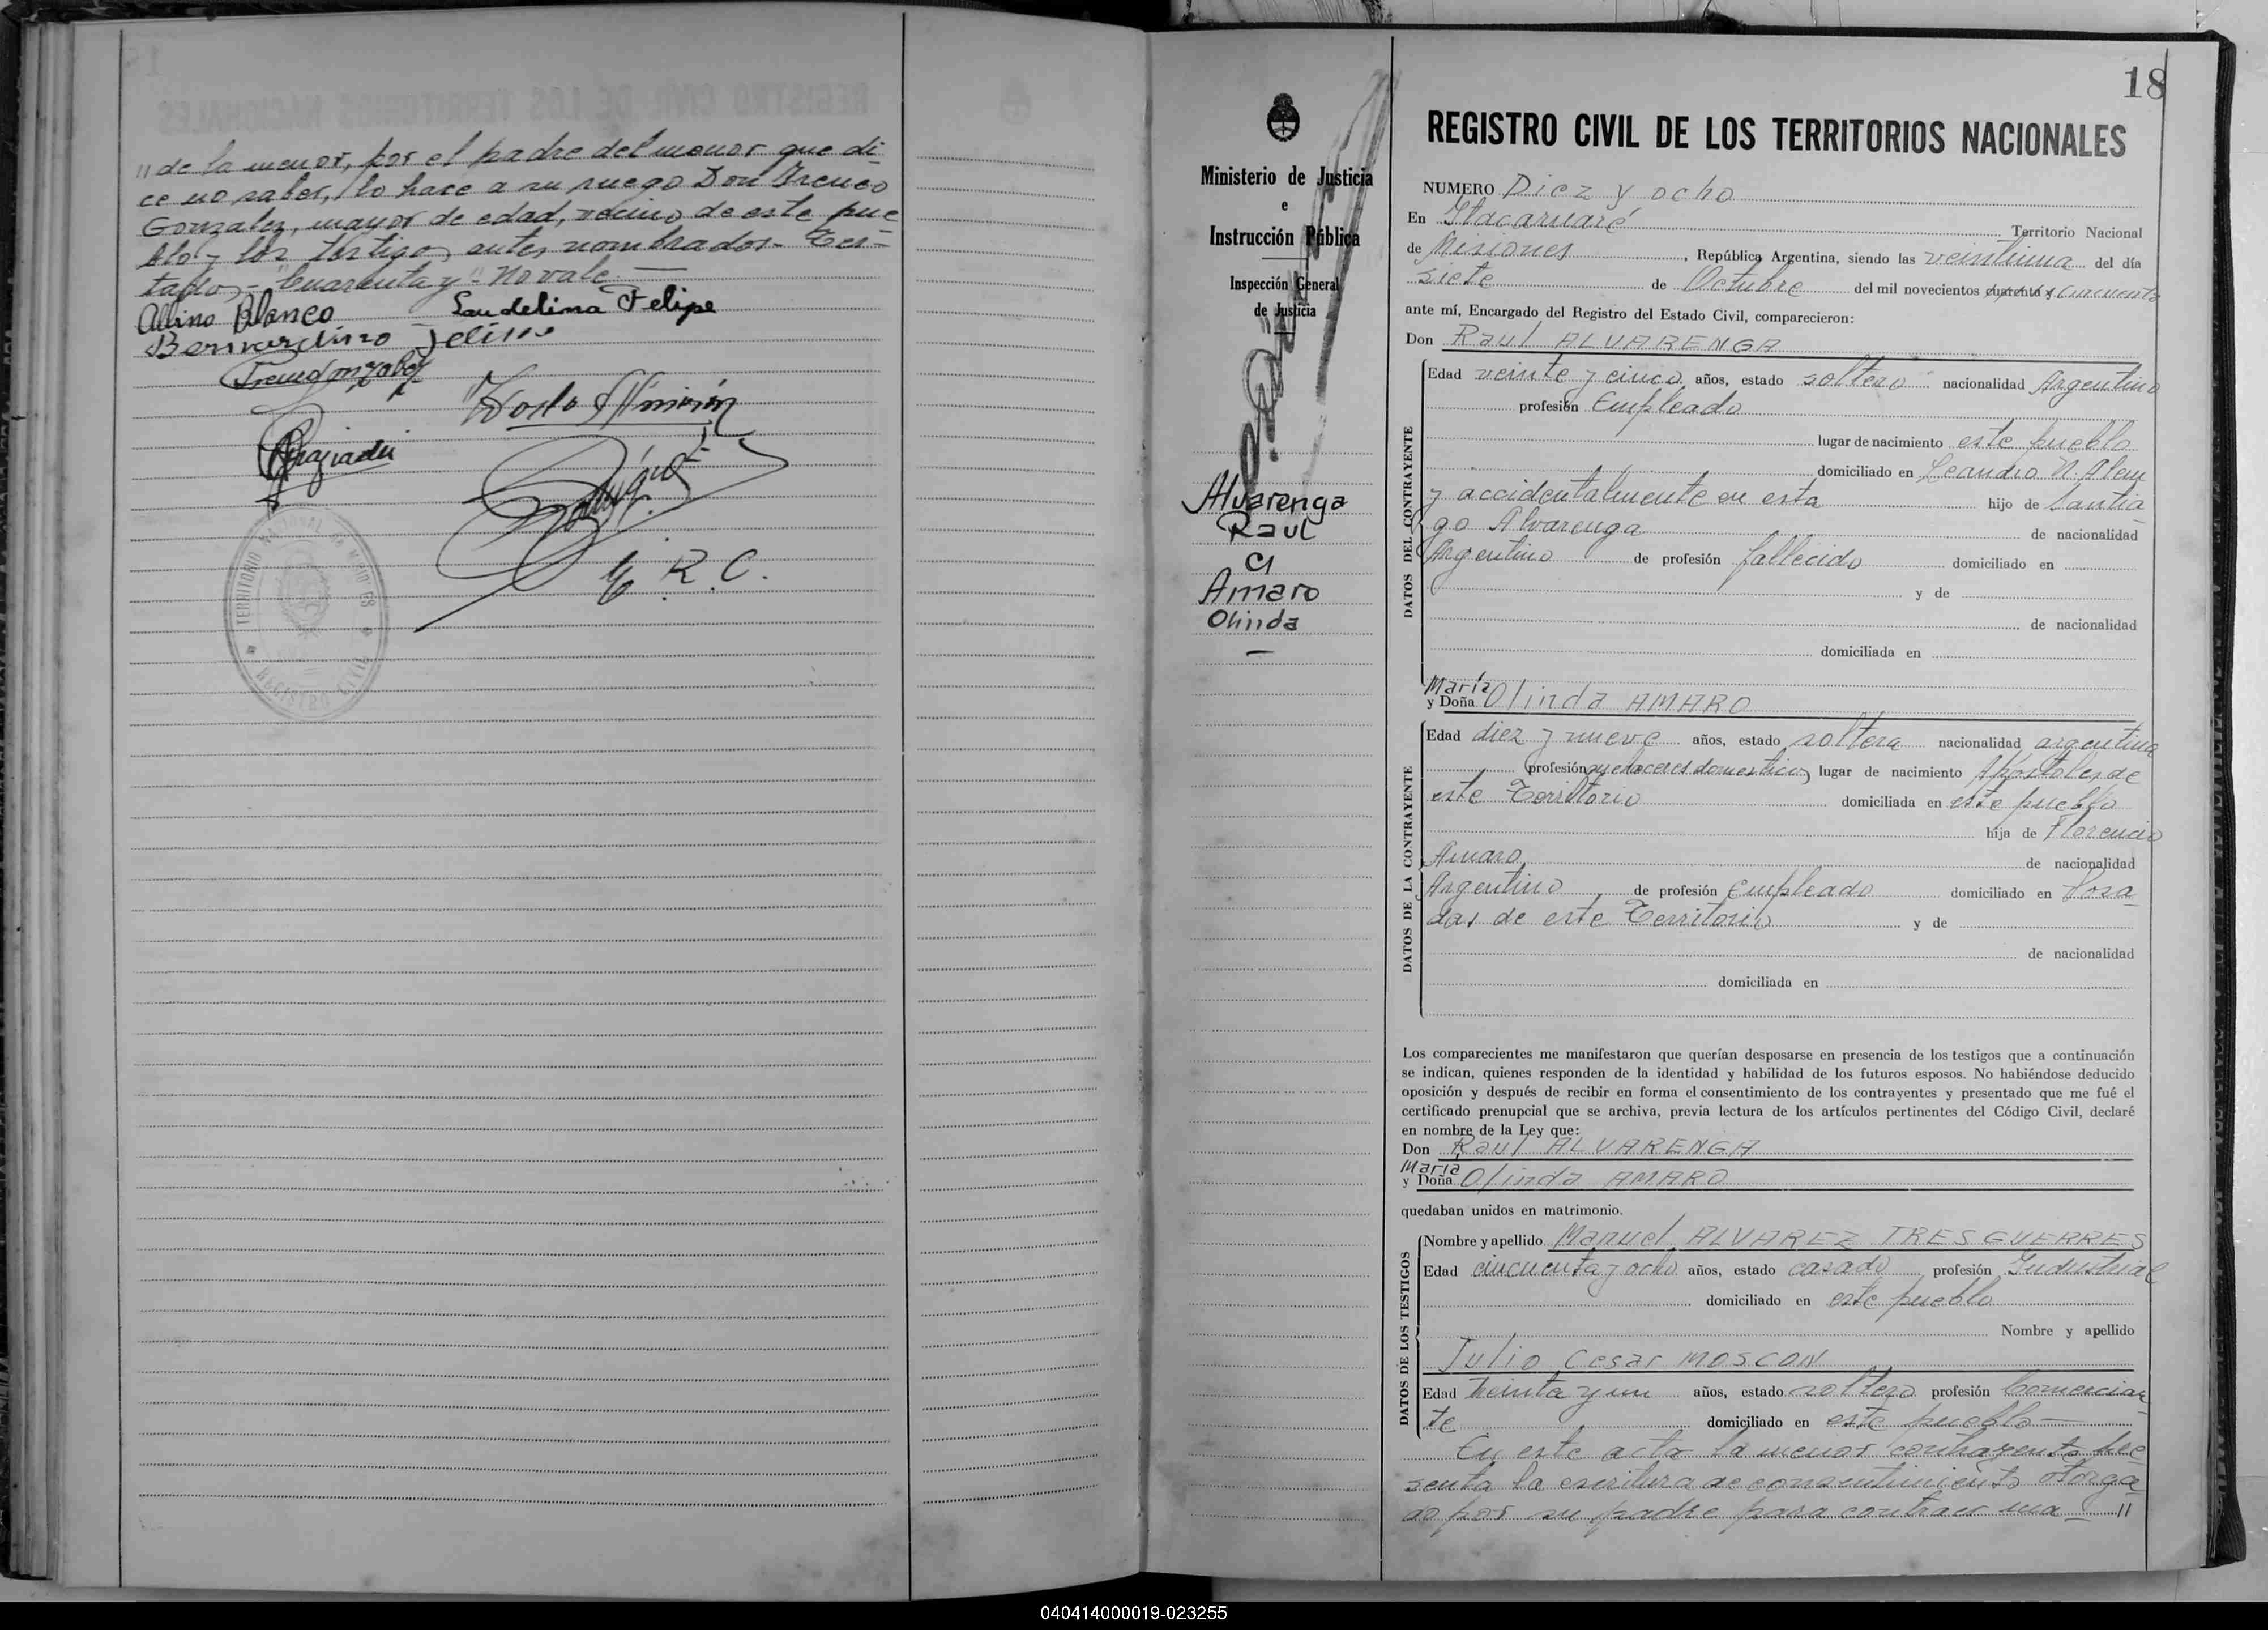 " de la menor, por el padre del menor que di-
ce no saber, lo hace a su ruego Don Ireneo
Gonzalez, mayor de edad, vecino de este pue
blo y los testigos antes nombrados - Tes-
tados - "Cuarenta y" - No vale —
Albino Blanco Laudelina Felipe
Bernardino Felipe
E. R. C.
TERRITORIO NACIONAL DE MISIONES
REGISTRO CIVIL
18
Ministerio de Justicia
e
Instrucción Pública
Inspección General
de Justicia
Alvarenga
Raul
C/
Amaro
Olinda
—
REGISTRO CIVIL DE LOS TERRITORIOS NACIONALES
NUMERO Diez y ocho
En Itacaruaré Territorio Nacional
de Misiones, República Argentina, siendo las veintiuna del día
siete de Octubre del mil novecientos cuarenta y cincuenta
ante mí, Encargado del Registro del Estado Civil, comparecieron:
Don Raul ALVARENGA
DATOS DEL CONTRAYENTE
Edad veinte y cinco años, estado soltero nacionalidad Argentino
profesión Empleado
lugar de nacimiento este pueblo
domiciliado en Leandro N. Alem
y accidentalmente en esta hijo de Santia
go Alvarenga de nacionalidad
Argentino de profesión fallecido domiciliado en
y de
de nacionalidad
domiciliada en
María
y Doña Olinda AMARO
DATOS DE LA CONTRAYENTE
Edad diez y nueve años, estado soltera nacionalidad argentina
profesión quehaceres domesticos lugar de nacimiento Apóstoles de
este Territorio domiciliada en este pueblo
hija de Florencio
Amaro de nacionalidad
Argentino de profesión Empleado domiciliado en Posa-
das de este Territorio y de
de nacionalidad
domiciliada en
Los comparecientes me manifestaron que querían desposarse en presencia de los testigos que a continuación
se indican, quienes responden de la identidad y habilidad de los futuros esposos. No habiéndose deducido
oposición y después de recibir en forma el consentimiento de los contrayentes y presentado que me fué el
certificado prenupcial que se archiva, previa lectura de los artículos pertinentes del Código Civil, declaré
en nombre de la Ley que:
Don Raul ALVARENGA
María
y Doña Olinda AMARO
quedaban unidos en matrimonio.
DATOS DE LOS TESTIGOS
Nombre y apellido Manuel ALVAREZ TRESGUERRES
Edad cincuenta y ocho años, estado casado profesión Industrial
domiciliado en este pueblo
Nombre y apellido
Julio Cesar MOSCON
Edad treinta y un años, estado soltero profesión Comercian-
te domiciliado en este pueblo —
En este acto la menor contrayente pre
senta la escritura de consentimiento otorga
do por su padre para contraer ma - "
040414000019-023255